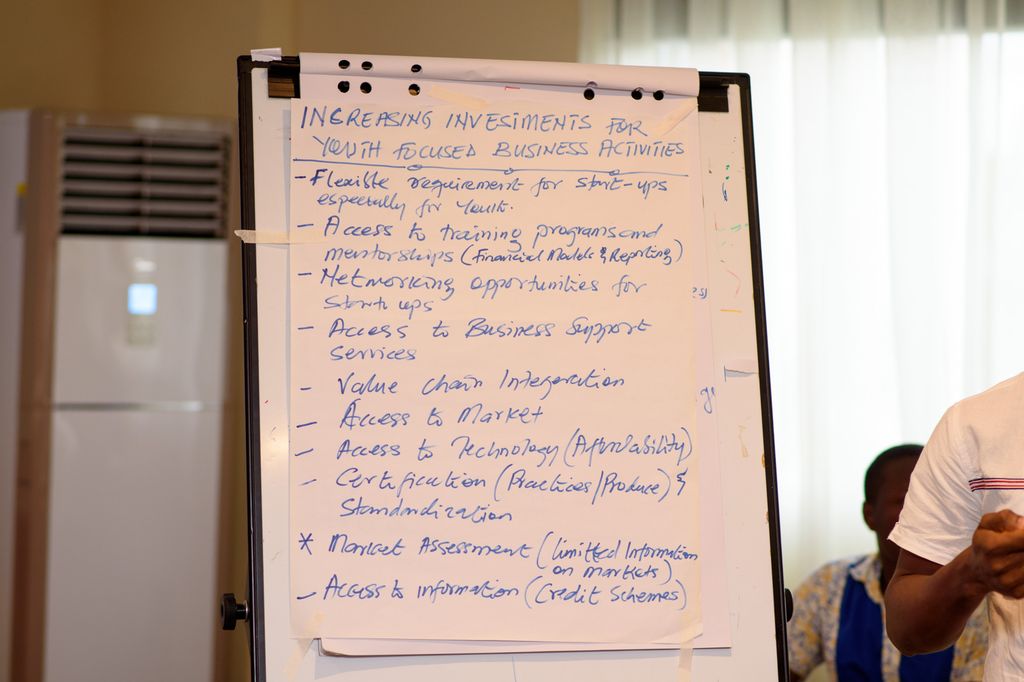 INCREASING INVESTMENTS FOR
YOUTH FOCUSED BUSINESS ACTIVITIES
- Flexible requirement for start-ups
especially for Youth.
- Access to training programs and
mentorships (Financial Models & Reporting)
- Networking opportunities for
Start ups
- Access to Business Support
Services
- Value chain Integeration
- Access to Market
- Access to Technology (Affordability)
- Certification (Practices/Produce) &
Standardization
* Market Assessment (limitted Information
on markets)
- Access to information (Credit Schemes)